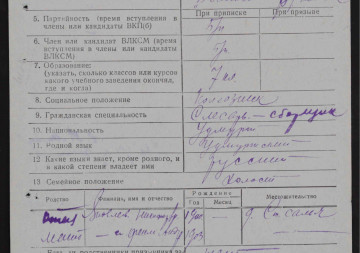 При приписке При призыве
5. Партийность (время вступления в члены или кандидаты ВКП(б) б/п
6. Член или кандидат ВЛКСМ (время вступления в члены или кандидаты ВЛКСМ) б/п
7. Образование: (указать, сколько классов или курсов какого учебного заведения окончил, где и когда) 7 кл
8. Социальное положение Колхозник
9. Гражданская специальность Слесарь - сборщик
10. Национальность Удмурт
11. Родной язык Удмуртский
12. Какие языки знает, кроме родного, и в какой степени владеет ими Русский
13. Семейное положение Холост
Родство Фамилия, имя и отчество Рождение Местожительство
Год Месяц
Отец
Мать 1903